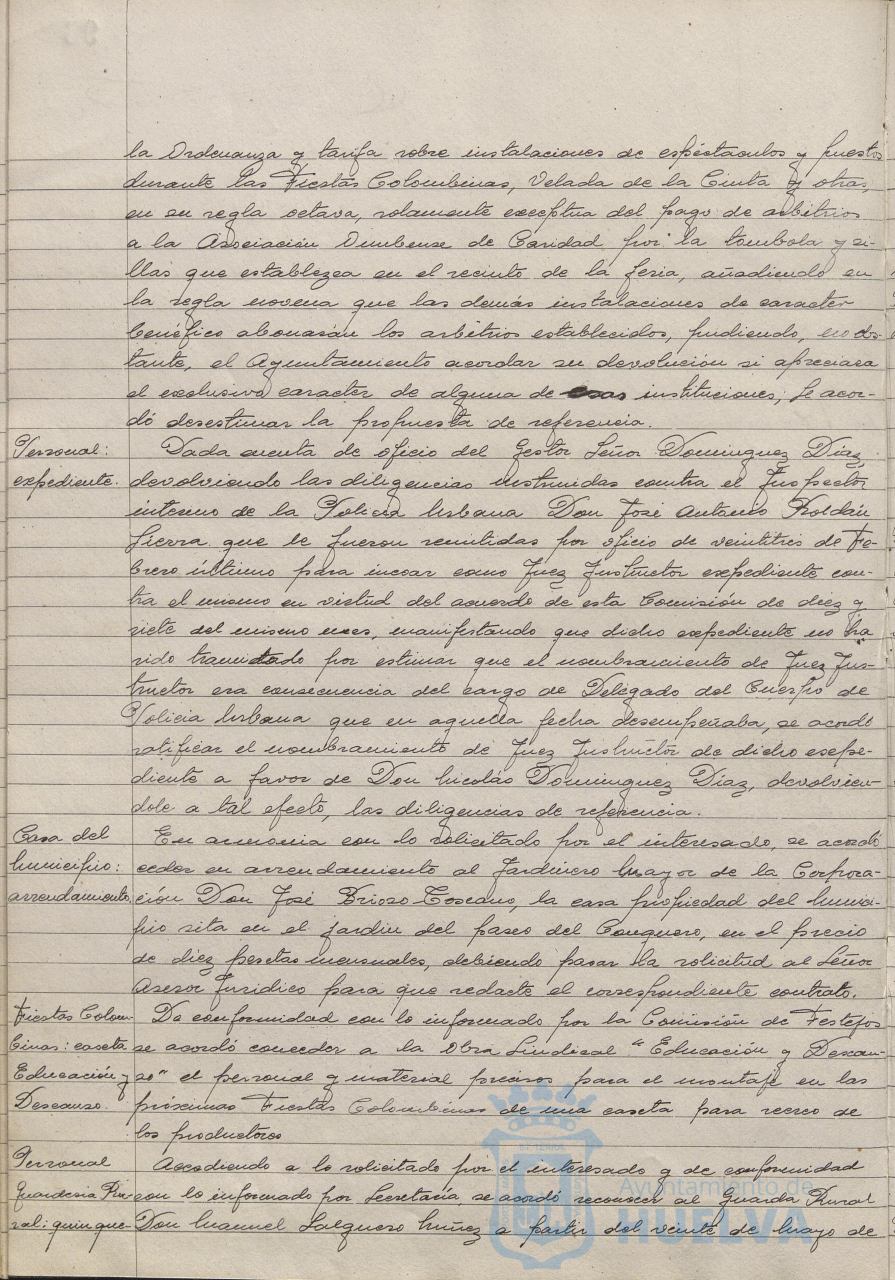 la Ordenanza y tarifa sobre instalaciones de espéctaculos y puestos
durante las Fiestas Colombinas, Velada de la Cinta y otras,
en su regla octava, solamente exceptua del pago de arbitrios
a la Asociación Onubense de Caridad por la tombola y si-
llas que establezca en el recinto de la feria, añadiendo en
la regla novena que las demás instalaciones de caracter
benéfico abonarán los arbitrios establecidos, pudiendo, no obs-
tante, el Ayuntamiento acordar su devolución si apreciara
el exclusivo caracter de alguna de esas instituciones; se acor-
dó desestimar la propuesta de referencia.
Personal:
expediente.
Dada cuenta de oficio del Gestor Señor Dominguez Díaz,
devolviendo las diligencias instruidas contra el Inspector
interino de la Policía Urbana Don José Antonio Roldán
Sierra que le fueron remitidas por oficio de veintitrés de Fe-
brero último para incoar como Juez Instructor expediente con-
tra el mismo en virtud del acuerdo de esta Comisión de diez y
siete del mismo mes, manifestando que dicho expediente no ha
sido tramitado por estimar que el nombramiento de Juez Ins-
tructor era consecuencia del cargo de Delegado del Cuerpo de
Policia Urbana que en aquella fecha desempeñaba, se acordó
ratificar el nombramiento de Juez Instructor de dicho expe-
diente a favor de Don Nicolás Dominguez Díaz, devolvien-
dole a tal efecto, las diligencias de referencia.
Casa del
Municipio:
arrendamiento.
En armonia con lo solicitado por el interesado, se acordó
ceder en arrendamiento al Jardinero Mayor de la Corpora-
ción Don José Brioso Toscano, la casa propiedad del Munici-
pio sita en el jardin del paseo del Conquero, en el precio
de diez pesetas mensuales, debiendo pasar la solicitud al Señor
Asesor Jurídico para que redacte el correspondiente contrato.
Fiestas Colom-
binas: caseta
Educación y
Descanso.
De conformidad con lo informado por la Comisión de Festejos
se acordó conceder a la Obra Sindical "Educación y Descan-
so" el personal y material precisos para el montaje en las
próximas Fiestas Colombinas de una caseta para recreo de
los productores
Personal
Guarderia Ru-
ral: quinque-
Accediendo a lo solicitado por el interesado y de conformidad
con lo informado por Secretaría, se acordó reconocer al Guarda Rural
Don Manuel Salguero Núñez a partir del veinte de Mayo de
Ayuntamiento de
HUELVA